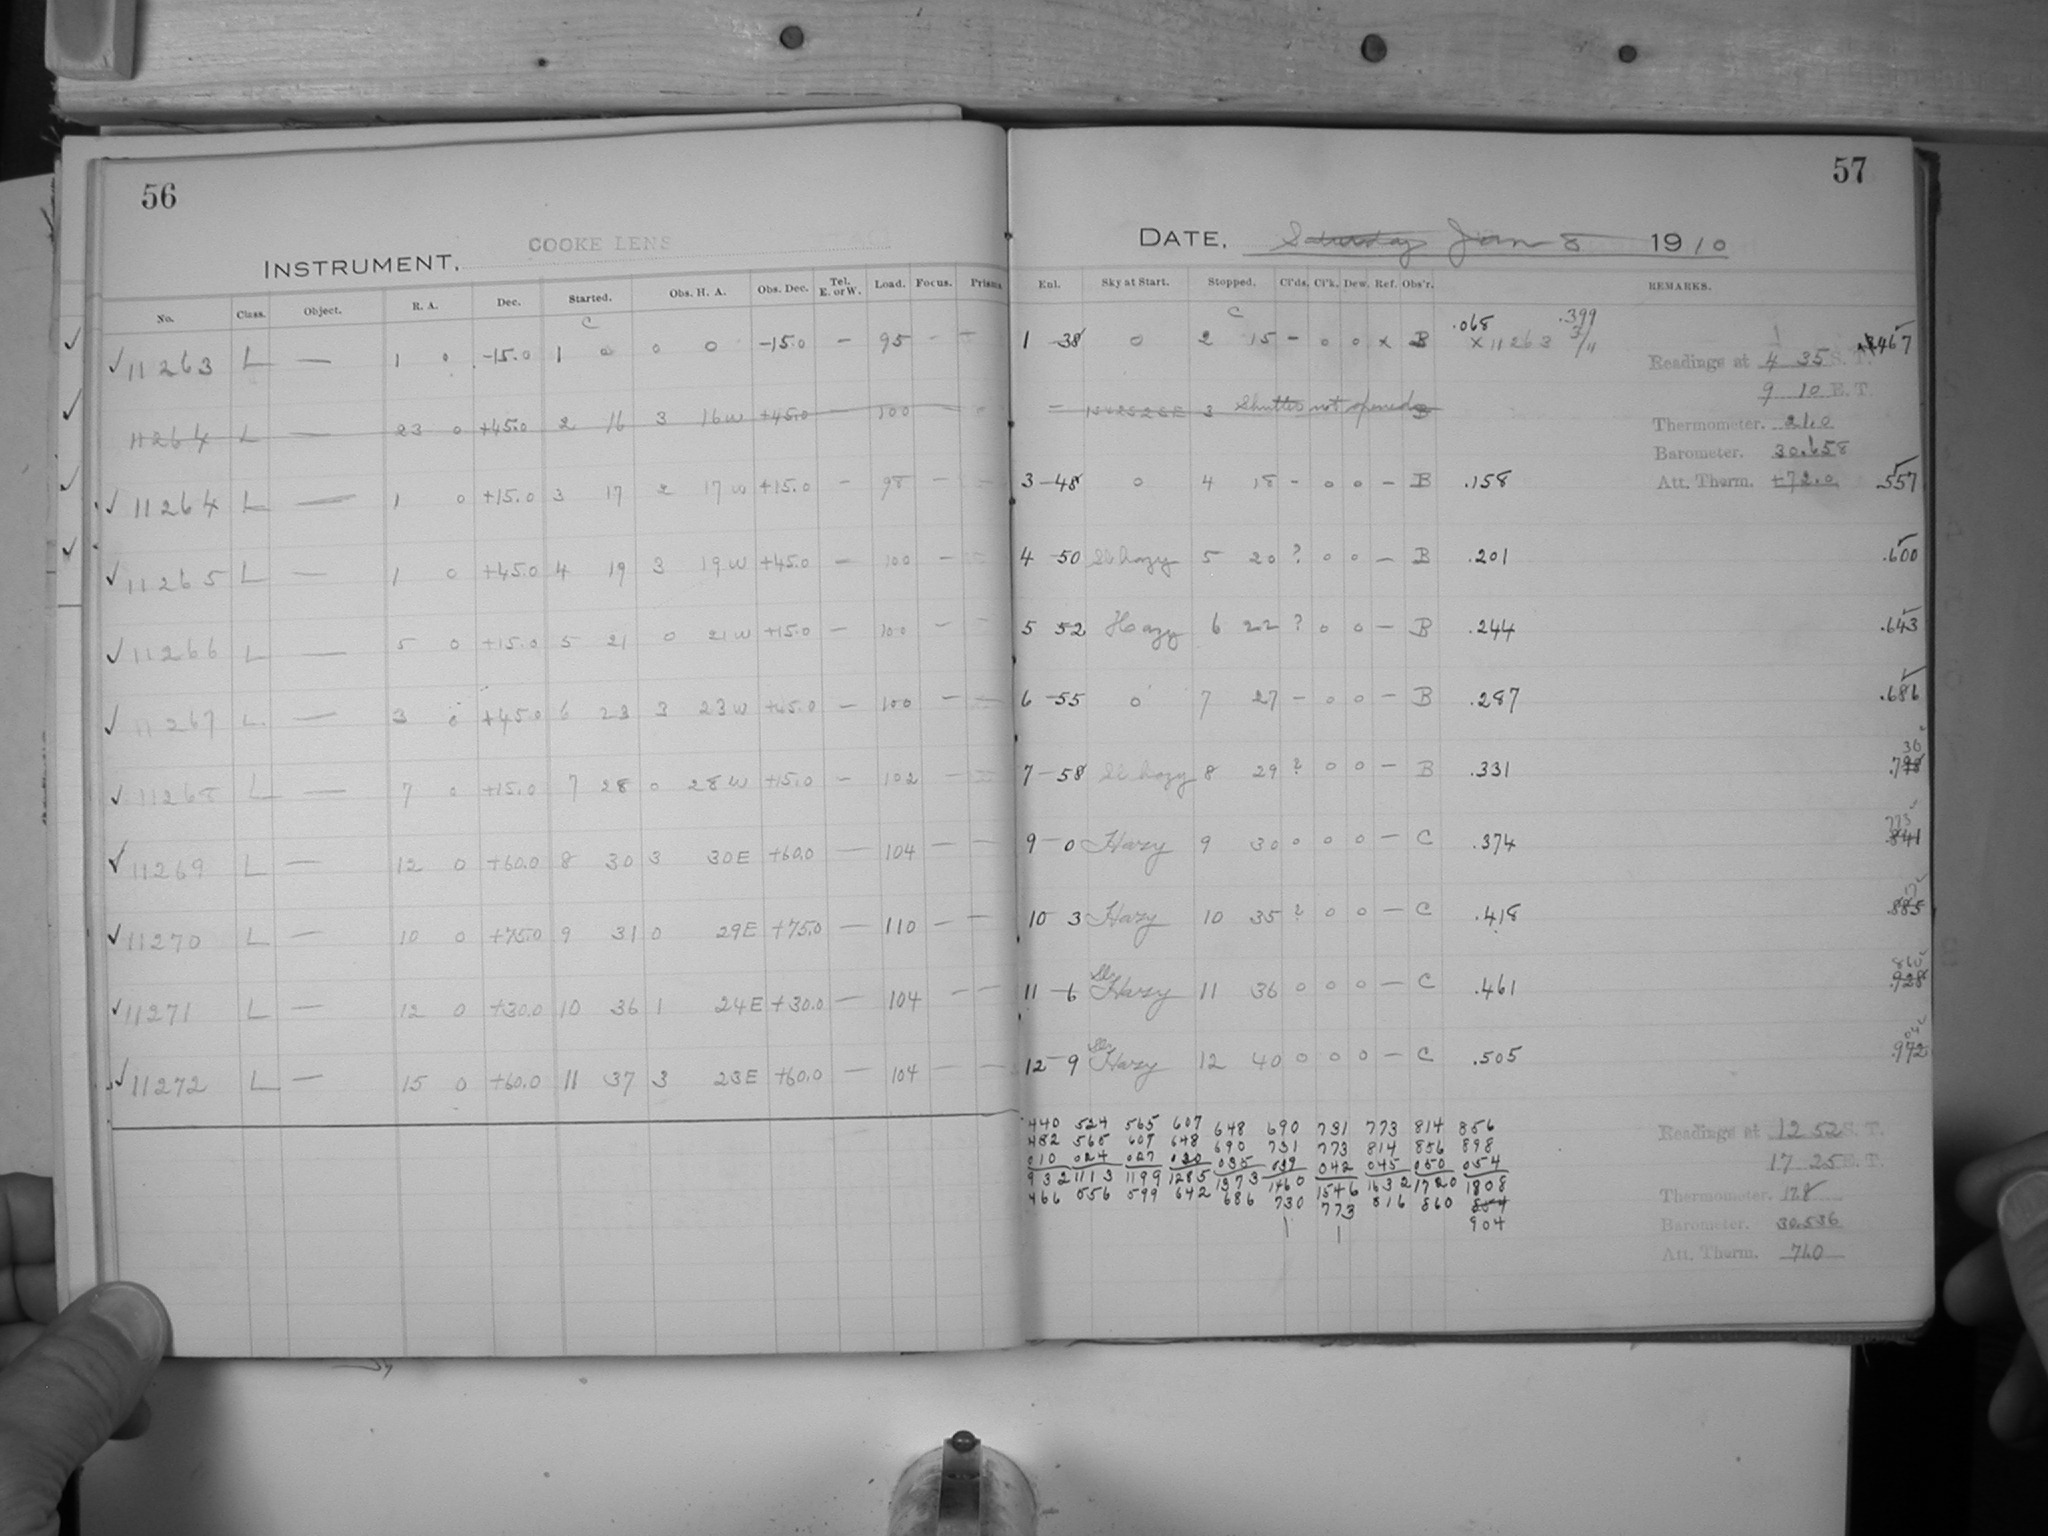 56
INSTRUMENT. COOKE LENS
No. Class. Object. R. A. Dec. Started. Obs. H. A. Obs. Dec. Tel. E. or W. Load. Focus. Prism
C
✓ 11263 L — 1 0 -15.0 1 0 0 0 -15.0 — 95 — —
11264 L — 23 0 +45.0 2 16 3 16W +45.0 — 100 — 0
✓ 11264 L — 1 0 +15.0 3 17 2 17W +15.0 — 98 — —
✓ 11265 L — 1 0 +45.0 4 19 3 19W +45.0 — 100 — —
✓ 11266 L — 5 0 +15.0 5 21 0 21W +15.0 — 100 — —
✓ 11267 L — 3 0 +45.0 6 23 3 23W +45.0 — 100 — —
✓ 11268 L — 7 0 +15.0 7 28 0 28W +15.0 — 102 — —
✓ 11269 L — 12 0 +60.0 8 30 3 30E +60.0 — 104 — —
✓ 11270 L — 10 0 +75.0 9 31 0 29E +75.0 — 110 — —
✓ 11271 L — 12 0 +30.0 10 36 1 24E +30.0 — 104 — —
✓ 11272 L — 15 0 +60.0 11 37 3 23E +60.0 — 104 — —
57
DATE, Saturday Jan 8 1910
Enl. Sky at Start. Stopped. Cl'ds. Cl'k. Dew. Ref. Obs'r. REMARKS.
C
1 -38 0 2 15 - 0 0 x B .068 x 11263 .399 3/11 467
3 Shutter not opened B
3 -48 0 4 18 - 0 0 - B .158 .557
4 50 Sl hazy 5 20 ? 0 0 - B .201 .600
5 52 Hazy 6 22 ? 0 0 - B .244 .643
6 -55 0 7 27 - 0 0 - B .287 .686
7 -58 Sl hazy 8 29 ? 0 0 - B .331 30
9 - 0 Hazy 9 30 0 0 0 - C .374 773 .841
10 3 Hazy 10 35 ? 0 0 - C .418 17 .885
11 - 6 Sl. Hazy 11 36 0 0 0 - C .461 860 .928
12 - 9 Sl. Hazy 12 40 0 0 0 - C .505 04 .972
Readings at 4 35 S. T.
9 10 E. T.
Thermometer. 21.0
Barometer. 30.658
Att. Therm. +72.0
440 524 565 607 648 690 731 773 814 856
482 565 607 648 690 731 773 814 856 898
010 024 027 030 035 039 042 045 050 054
932 1113 1199 1285 1373 1460 1546 1632 1720 1808
466 556 599 642 686 730 773 816 860
904
Readings at 12 52 S. T.
17 25 E. T.
Thermometer. 17.8
Barometer. 30.536
Att. Therm. 71.0